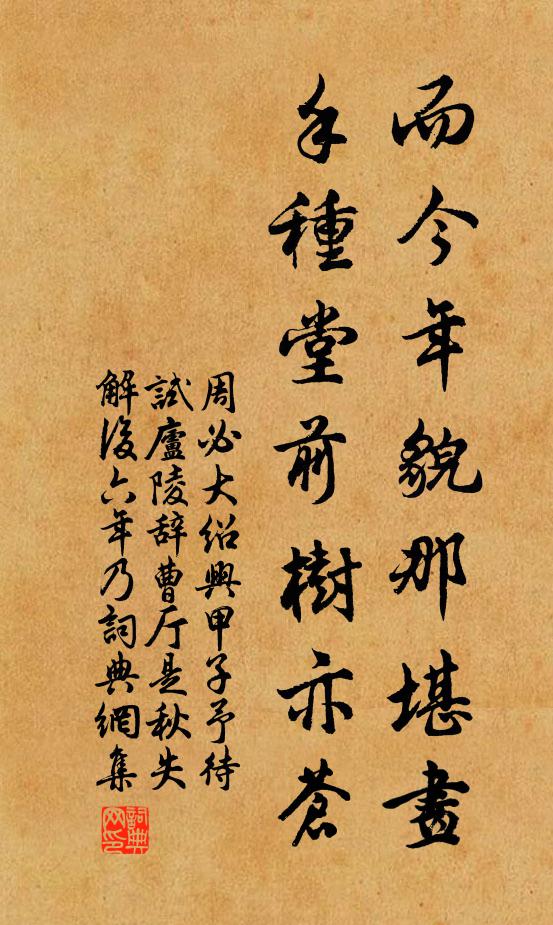 而今年貌那堪畫
手種堂前樹亦蒼
周必大紹興甲子予待
試廬陵辞曹厅是秋失
解後六年乃詞典網集
詞典
网印